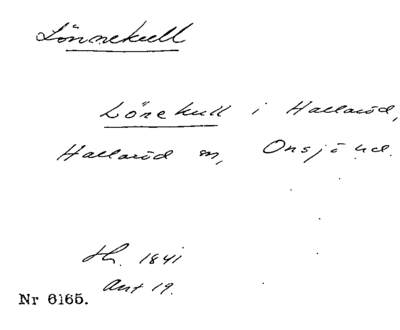 Lönnekull
Lönekull i Hallaröd,
Hallaröd sn, Onsjö hd.
1841
Akt 19.
Nr 6165.